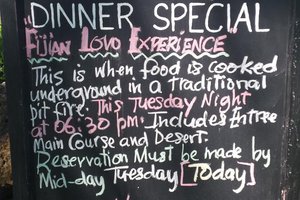 DINNER SPECIAL
"FIJIAN LOVO EXPERIENCE"
This is when food is cooked
underground in a traditional
pit fire. This Tuesday Night
at 06:30 pm. Includes Entree
Main Course and Desert.
Reservation Must be made by
Mid-day Tuesday [Today]